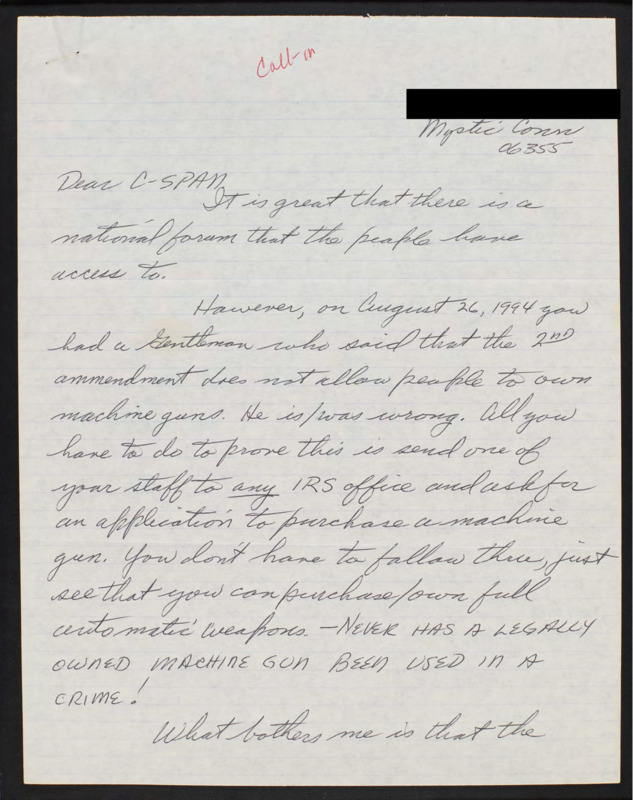 Call-in
Mystic Conn
06355
Dear C-SPAN
It is great that there is a
national forum that the people have
access to.
However, on August 26, 1994 you
had a Gentleman who said that the 2ND
ammendment does not allow people to own
machine guns. He is/was wrong. All you
have to do to prove this is send one of
your staff to any IRS office and ask for
an application to purchase a machine
gun. You don't have to follow thru, just
see that you can purchase/own full
automatic weapons. - NEVER HAS A LEGALLY
OWNED MACHINE GUN BEEN USED IN A
CRIME!
What bothers me is that the